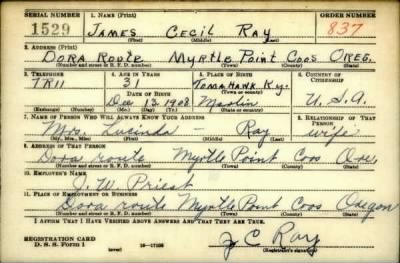 SERIAL NUMBER 1. NAME (Print) ORDER NUMBER
1529 JAMES CECIL RAY 837
(First) (Middle) (Last)
2. ADDRESS (Print)
DORA ROUTE MYRTLE POINT COOS OREG.
(Number and street or R. F. D. number) (Town) (County) (State)
3. TELEPHONE 4. AGE IN YEARS 5. PLACE OF BIRTH 6. COUNTRY OF CITIZENSHIP
7R11 31 TOMAHAWK KY.
DATE OF BIRTH (Town or county)
Dec 13 1908 Martin U.S.A.
(Exchange) (Number) (Mo.) (Day) (Yr.) (State or country)
7. NAME OF PERSON WHO WILL ALWAYS KNOW YOUR ADDRESS 8. RELATIONSHIP OF THAT PERSON
Mrs. Lucinda - Ray wife
(Mr., Mrs., Miss) (First) (Middle) (Last)
9. ADDRESS OF THAT PERSON
Dora route Myrtle Point Coos Ore.
(Number and street or R. F. D. number) (Town) (County) (State)
10. EMPLOYER'S NAME
J. W. Priest
11. PLACE OF EMPLOYMENT OR BUSINESS
Dora route Myrtle Point Coos Oregon
(Number and street or R. F. D. number) (Town) (County) (State)
I AFFIRM THAT I HAVE VERIFIED ABOVE ANSWERS AND THAT THEY ARE TRUE.
REGISTRATION CARD
D. S. S. Form 1 (over) 16-17105 J C Ray
(Registrant's signature)